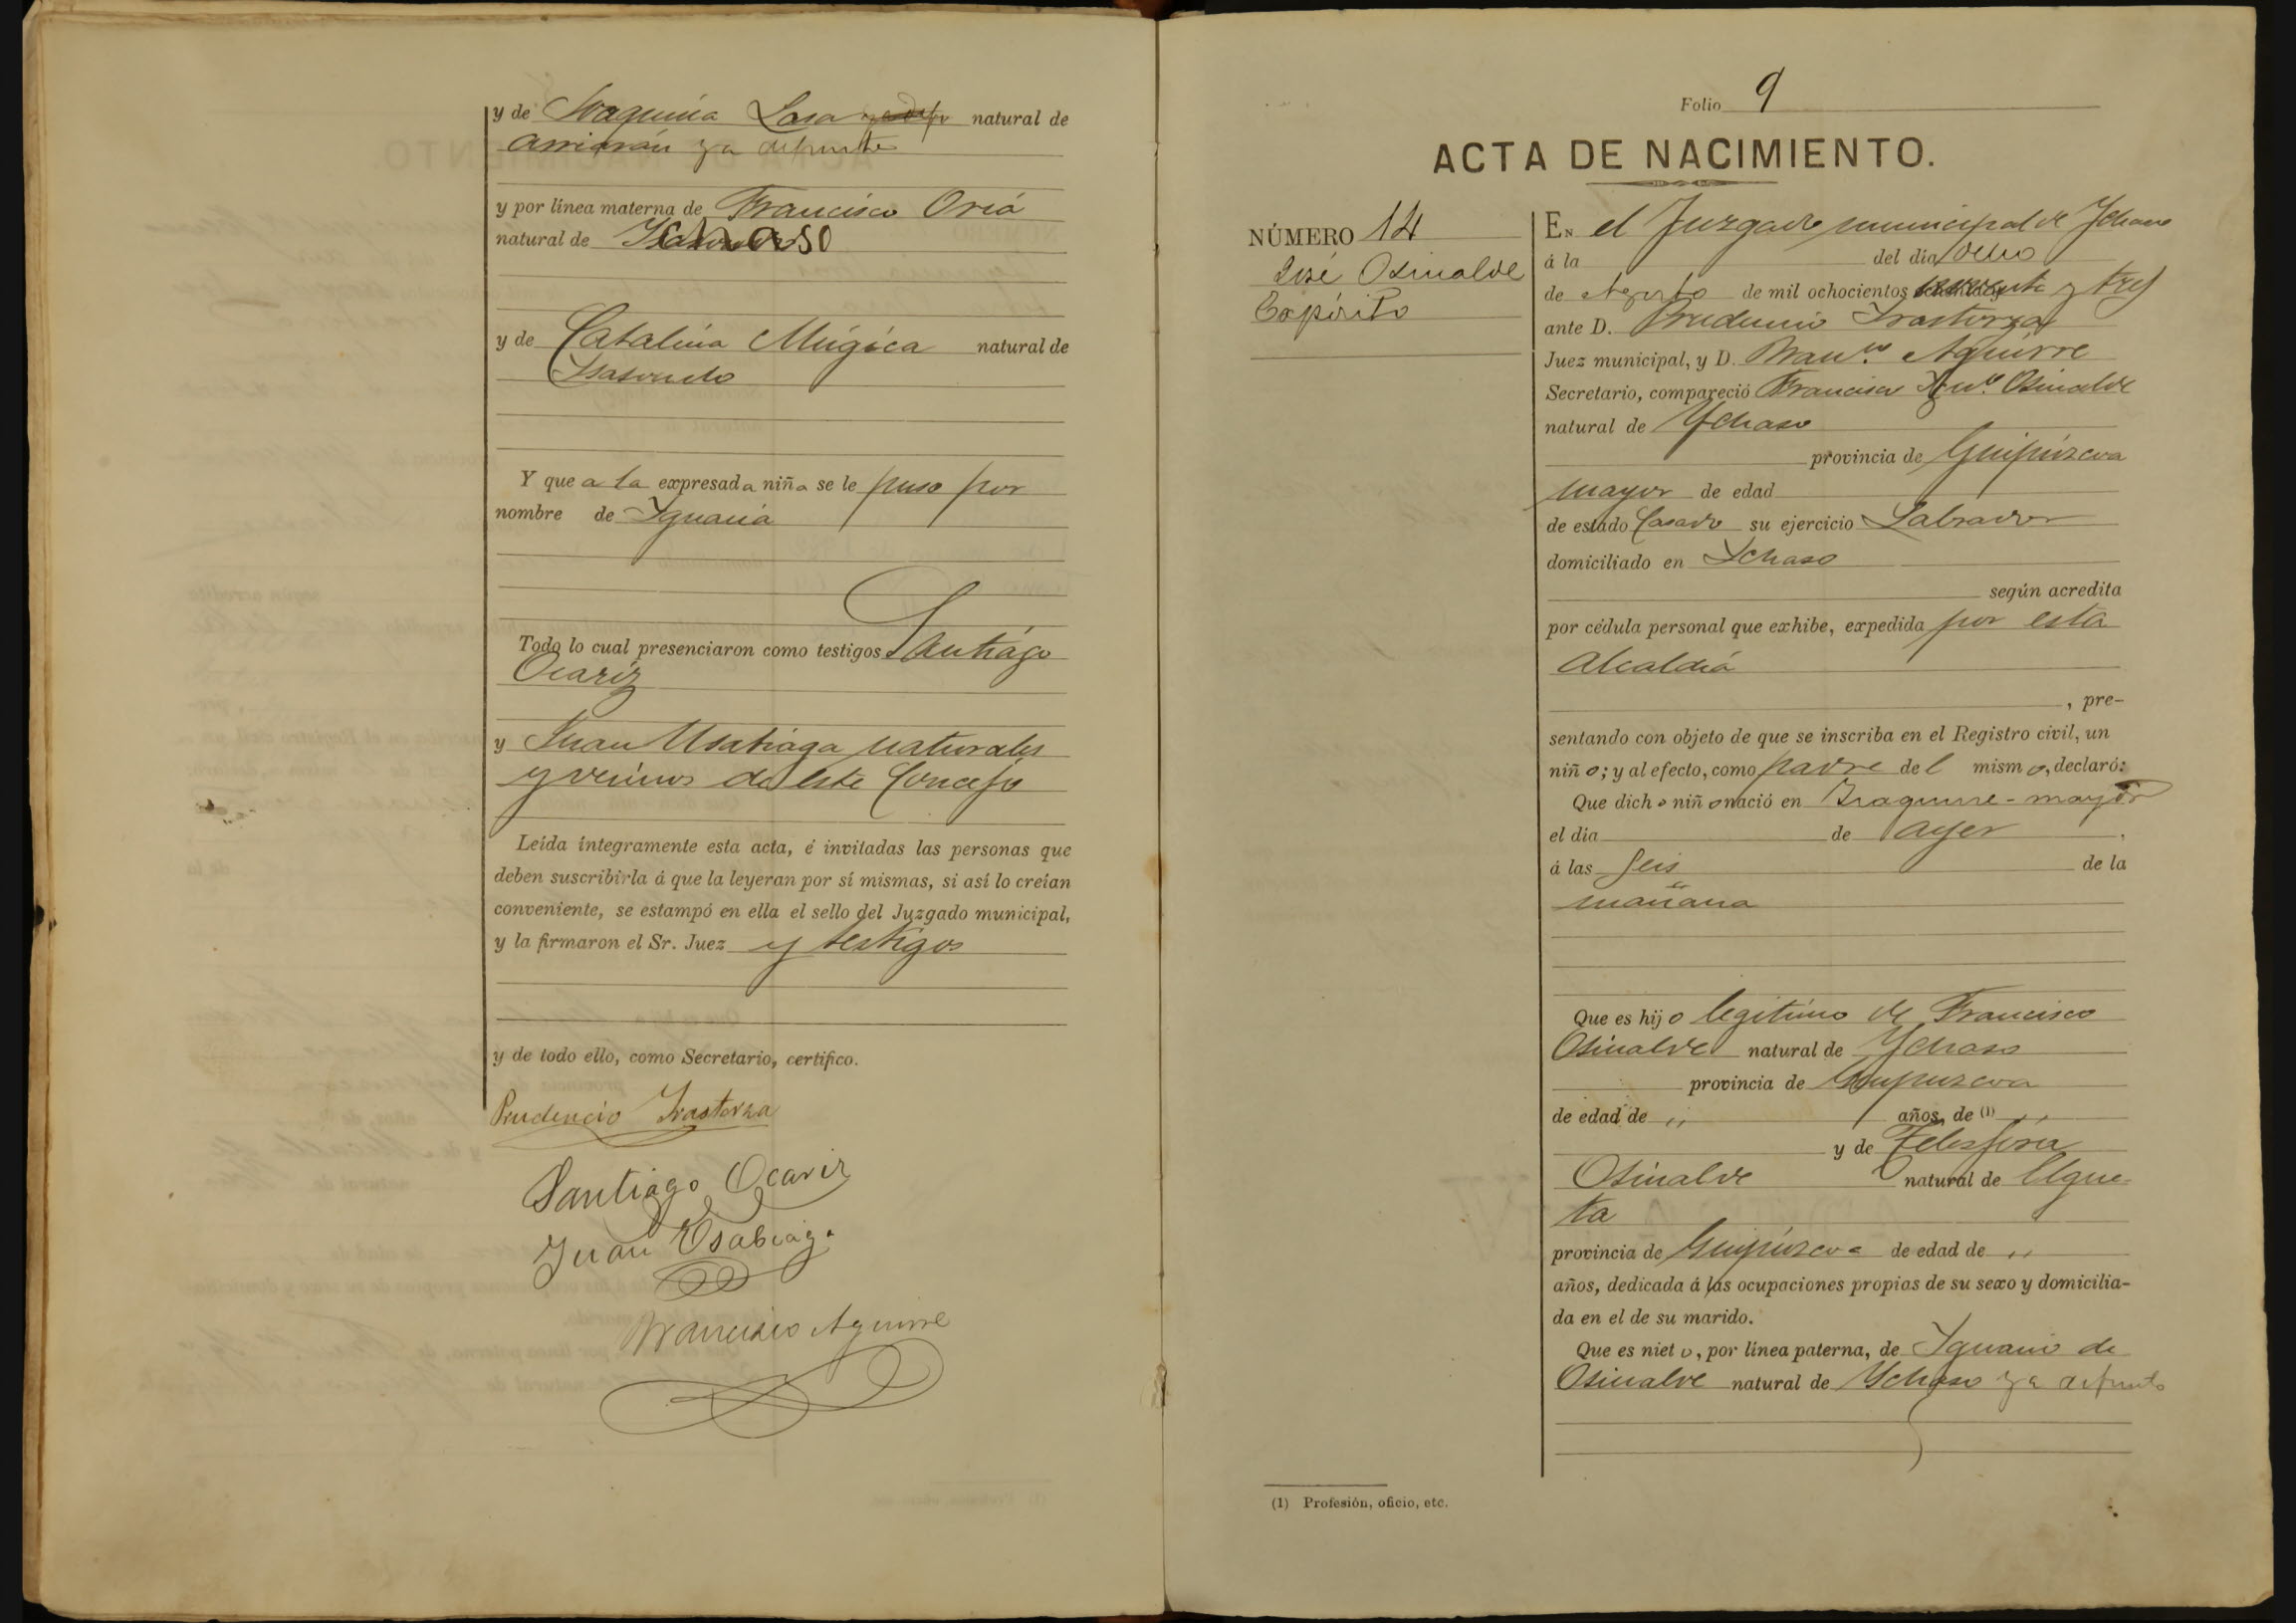 y de Joaquina Lasa natural de
Arriarán ya difunta
y por línea materna de Francisco Oria
natural de Ichaso
y de Catalina Múgica natural de
Isasondo
Y que a la expresada niña se le puso por
nombre de Ygnacia
Todo lo cual presenciaron como testigos Santiágo
Ocariz
y Juan Usabiaga naturales
y vecinos de este Concejo
Leída íntegramente esta acta, é invitadas las personas que
deben suscribirla á que la leyeran por sí mismas, si así lo creían
conveniente, se estampó en ella el sello del Juzgado municipal,
y la firmaron el Sr. Juez y testigos
y de todo ello, como Secretario, certifico.
Prudencio Irastorza
Santiago Ocariz
Juan Usabiaga
Francisco Aguirre
Folio 9
ACTA DE NACIMIENTO.
NÚMERO 14
José Osinalde
Expósito
EN el Juzgado municipal de Ychaso
á la del día ocho
de Agosto de mil ochocientos noventa y tres
ante D. Prudencio Irastorza
Juez municipal, y D. Fran.co Aguirre
Secretario, compareció Francisco Osinalde
natural de Ychaso
provincia de Guipúzcoa
mayor de edad
de estado Casado su ejercicio Labrador
domiciliado en Ichaso
según acredita
por cédula personal que exhibe, expedida por esta
Alcaldiá
, pre-
sentando con objeto de que se inscriba en el Registro civil, un
niño; y al efecto, como padre del mismo, declaró:
Que dicho niño nació en Iraguirre-mayor
el día de ayer.
á las seis de la
mañana
Que es hijo legitimo de Francisco
Osinalde natural de Ychaso
provincia de Guipuzcoa
de edad de ,, años, de (1) ,,
y de Telesfora
Osinalde natural de Elgue-
ta
provincia de Guipúzcoa de edad de ,,
años, dedicada á las ocupaciones propias de su sexo y domicilia-
da en el de su marido.
Que es nieto, por línea paterna, de Ygnacio de
Osinalde natural de Ychaso ya difunto
(1) Profesión, oficio, etc.